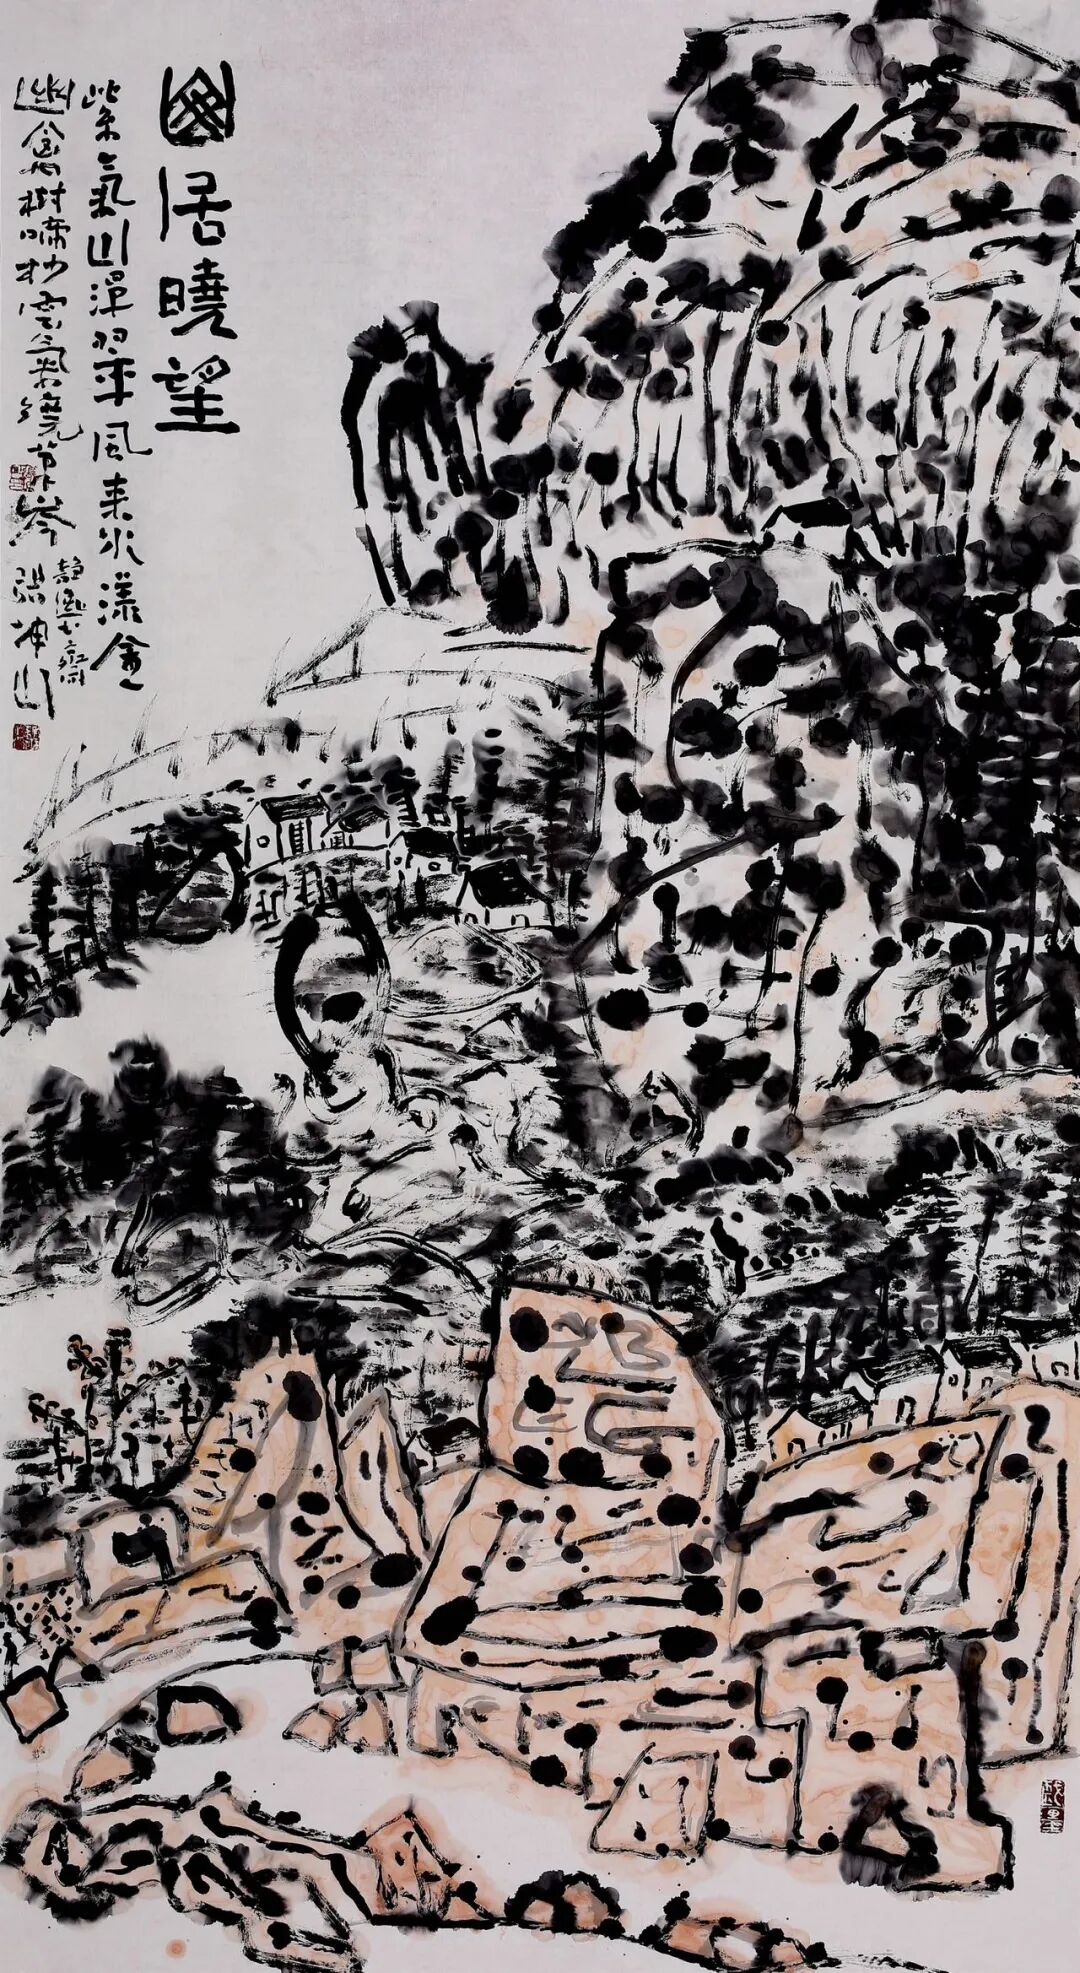 幽居曉望
紫氣山渾翠風來水漾金
幽禽樹啼杪雲氣繞岑
齋
張坤山